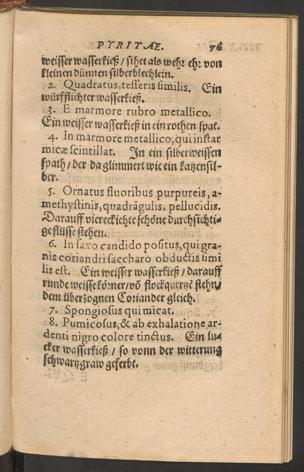 PYRITAE. 76
weisser wasserkieß / sihet als wehr ehr von
kleinen dünnen silberblechlein.
2. Quadratus, tesseris similis. Ein
würfflichter wasserkieß.
3. E marmore rubro metallico.
Ein weisser wasserkieß in ein rothen spat.
4. In marmore metallico, qui instar
micæ scintillat. Jn ein silberweissen
spath / der da glimmert wie ein katzensil-
ber.
5. Ornatus fluoribus purpureis, a-
methystinis, quadrãgulis, pellucidis.
Darauff viereckichte schöne durchsichti-
ge flüsse stehen.
6. In saxo candido positus, qui gra-
nis coriandri saccharo obductis simi
lis est. Ein weisser wasserkieß / darauff
runde weisse körner / võ flockquertzẽ stehn /
dem überzognen Coriander gleich.
7. Spongiosus qui micat.
8. Pumicosus, & ab exhalatione ar-
denti nigro colore tinctus. Ein lu-
cker wasserkieß / so vonn der witterung
schwartzgraw geferbt.